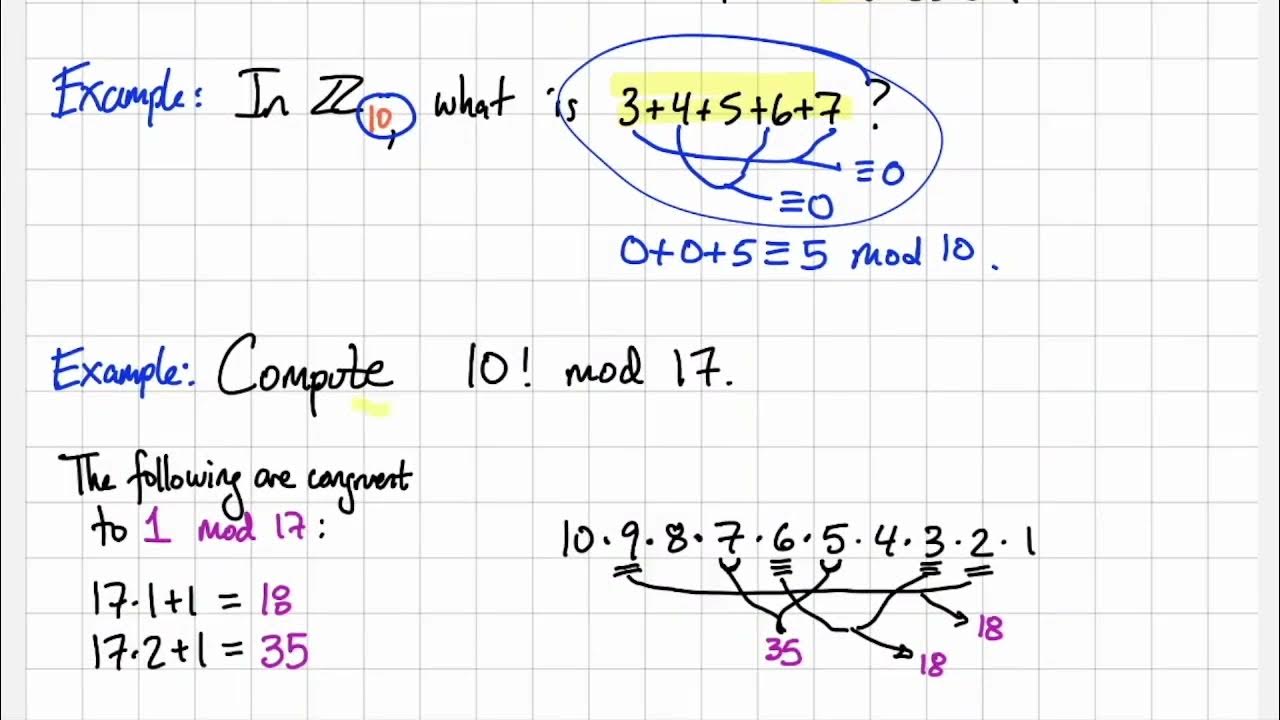 Example: In ℤ10, what is 3+4+5+6+7 ?
≡0
≡0
0+0+5≡5 mod 10.
Example: Compute 10! mod 17.
The following are congruent
to 1 mod 17:
10·9·8·7·6·5·4·3·2·1
17·1+1 = 18
17·2+1 = 35
18
35
18